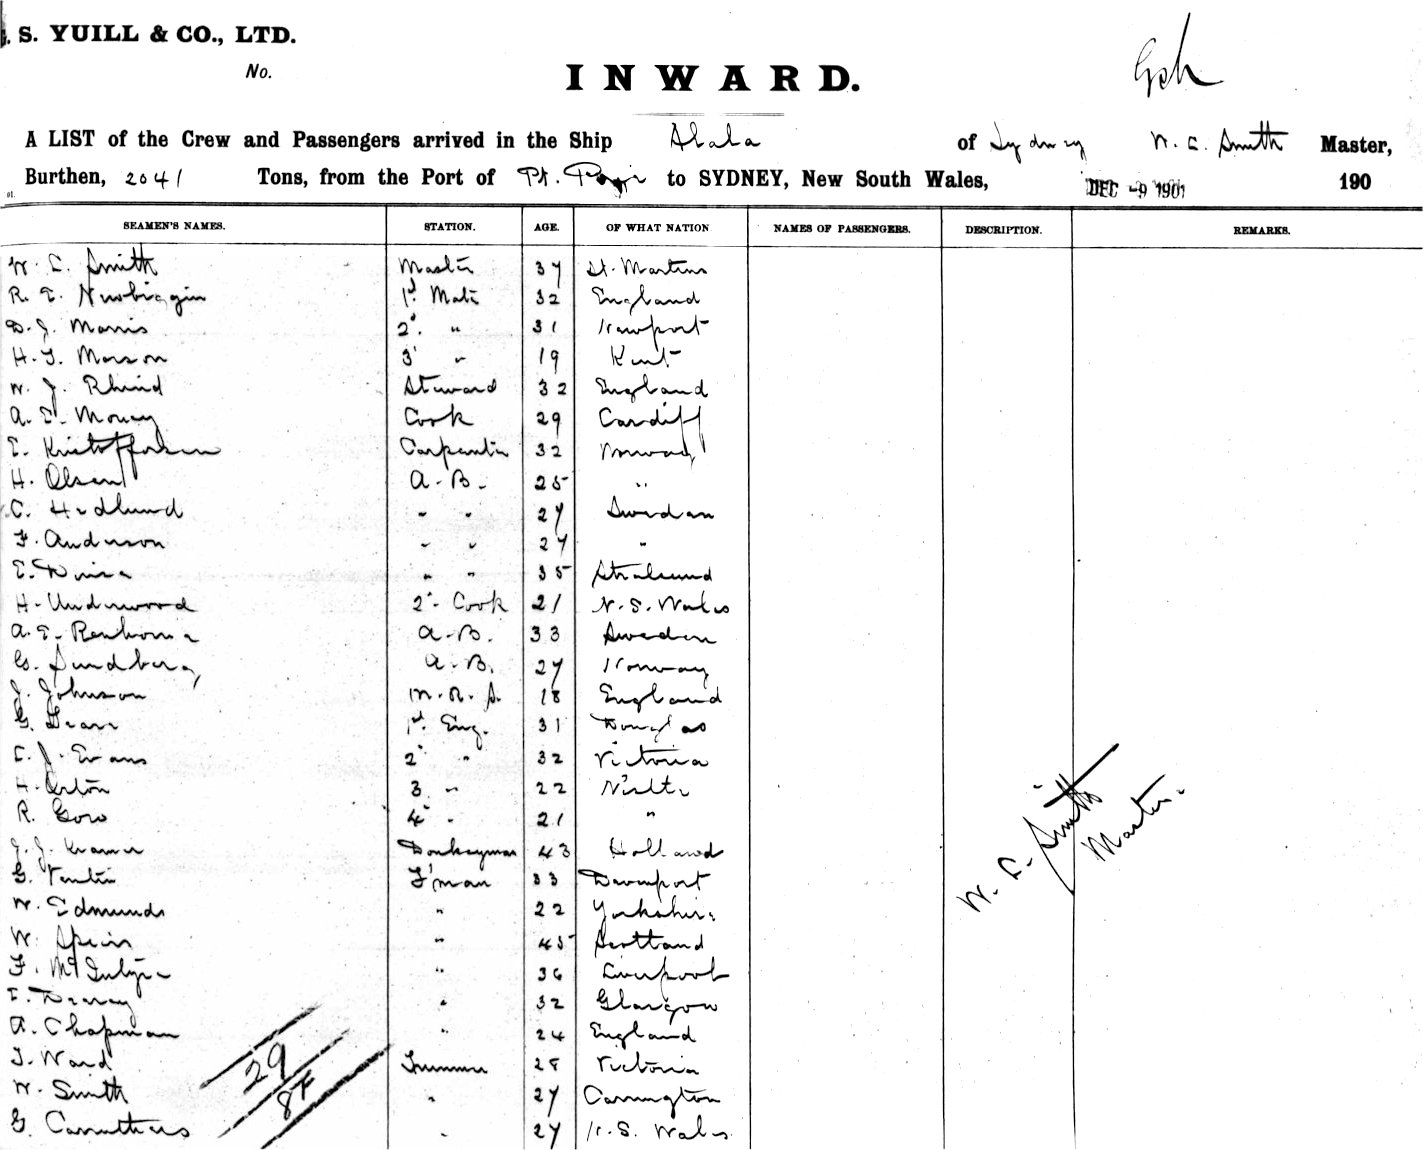 . S. YUILL & CO., LTD.
No.
INWARD.
A LIST of the Crew and Passengers arrived in the Ship Abala of Sydney W. C. Smith Master,
Burthen, 2041 Tons, from the Port of Pt. to SYDNEY, New South Wales, DEC -9 1901 190
SEAMEN'S NAMES. STATION. AGE. OF WHAT NATION NAMES OF PASSENGERS. DESCRIPTION. REMARKS.
W. C. Smith Master 37 St. Martins
R. E. Newbiggin 1st Mate 32 England
D. J. Morris 2d. " 31 Newport
H. T. Morson 3d " 19 Kent
W. J. Rhind Steward 32 England
A. E. Money Cook 29 Cardiff
E. Kristoffersen Carpenter 32 Norway
H. Olsen A.B. 25 "
C. Hedlund " " 27 Sweden
F. Anderson " " 27 "
E. " " 35 Stralsund
H. Underwood 2d Cook 21 N.S. Wales
A. E. A.B. 33 Sweden
G. Sundberg A.B. 27 Norway
J. Johnson M.R.S. 18 England
G. 1st. Eng. 31 Douglas
C. J. Evans 2d " 32 Victoria
H. 3 " 22 N'slte
R. Gow 4th " 21 "
J. J. Kramer Donkeyman 43 Holland
G. F'man 33 Davenport
W. Edmunds " 22 Yorkshire
W. Speirs " 45 Scotland
F. McIntyre " 36 Liverpool
" 32 Glasgow
A. Chapman " 24 England
T. Ward Trimmer 28 Victoria
W. Smith " 27 Carrington
G. Carruthers " 27 N.S. Wales
W. C. Smith
Master.
29